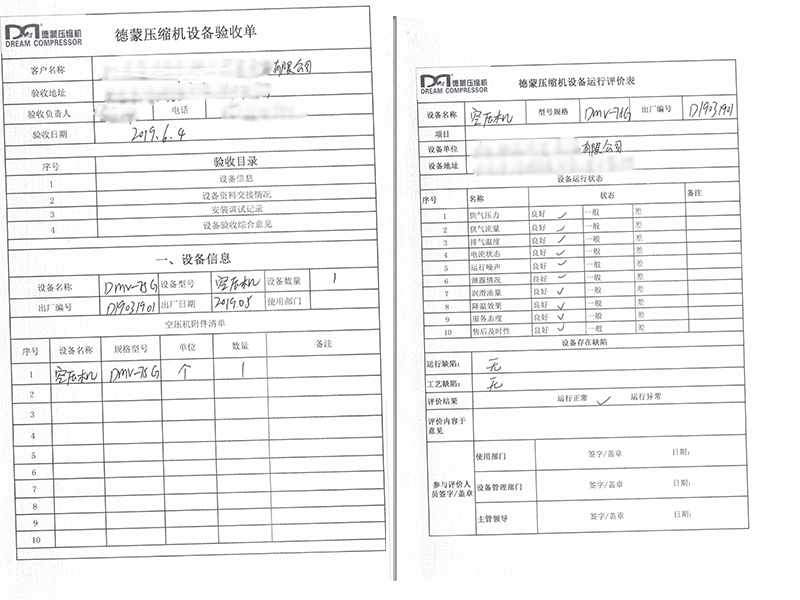 德蒙压缩机
DREAM COMPRESSOR
德蒙压缩机设备验收单
客户名称 有限公司
验收地址
验收负责人 电话
验收日期 2019.6.4
序号 验收目录
1 设备信息
2 设备资料交接情况
3 安装调试记录
4 设备验收综合意见
一、设备信息
设备名称 DMV-75G 设备型号 空压机 设备数量 1
出厂编号 D19031901 出厂日期 2019.05 使用部门
空压机附件清单
序号 设备名称 规格型号 单位 数量 备注
1 空压机 DMV-75G 个 1
2
3
4
5
6
7
8
9
10
德蒙压缩机
DREAM COMPRESSOR
德蒙压缩机设备运行评价表
设备名称 空压机 型号规格 DMV-75G 出厂编号 D19031901
项目
设备单位 有限公司
设备地址
设备运行状态
序号 名称 状态 备注
1 供气压力 良好 ✓ 一般 差
2 供气流量 良好 ✓ 一般 差
3 排气温度 良好 ✓ 一般 差
4 电流状态 良好 ✓ 一般 差
5 运行噪声 良好 ✓ 一般 差
6 泄露情况 良好 ✓ 一般 差
7 润滑油量 良好 ✓ 一般 差
8 降温效果 良好 ✓ 一般 差
9 服务态度 良好 ✓ 一般 差
10 售后及时性 良好 ✓ 一般 差
设备存在缺陷
运行缺陷: 无
工艺缺陷: 无
评价结果 运行正常 ✓ 运行异常
评价内容于
意见
参与评价人
员签字/盖章
使用部门 签字/盖章 日期:
设备管理部门 签字/盖章 日期:
主管领导 签字/盖章 日期: